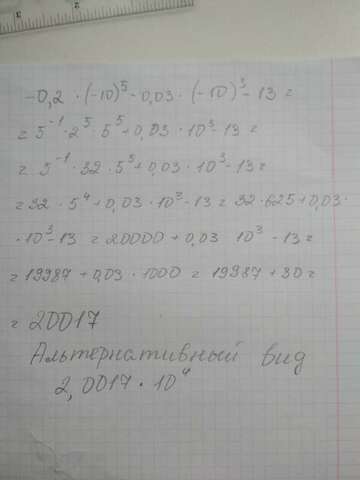 -0,2 · (-10)⁵ - 0,03 · (-10)³ - 13 =
= 5⁻¹ · 2⁵ · 5⁵ + 0,03 · 10³ - 13 =
= 5⁻¹ · 32 · 5⁵ + 0,03 · 10³ - 13 =
= 32 · 5⁴ + 0,03 · 10³ - 13 = 32 · 625 + 0,03 ·
· 10³ - 13 = 20000 + 0,03 10³ - 13 =
= 19987 + 0,03 · 1000 = 19987 + 30 =
= 20017
Альтернативный вид
2,0017 · 10⁴